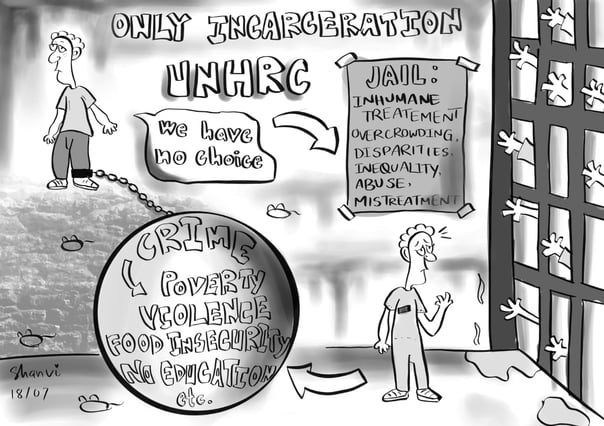 ONLY INCARCERATION
UNHRC
We have
no choice
JAIL:
INHUMANE
TREATEMENT
OVERCROWDING,
DISPARITIES,
INEQUALITY,
ABUSE,
MISTREATMENT
CRIME
POVERTY
VIOLENCE
FOOD INSECURITY
NO EDUCATION
etc.
Shanvi
18/07